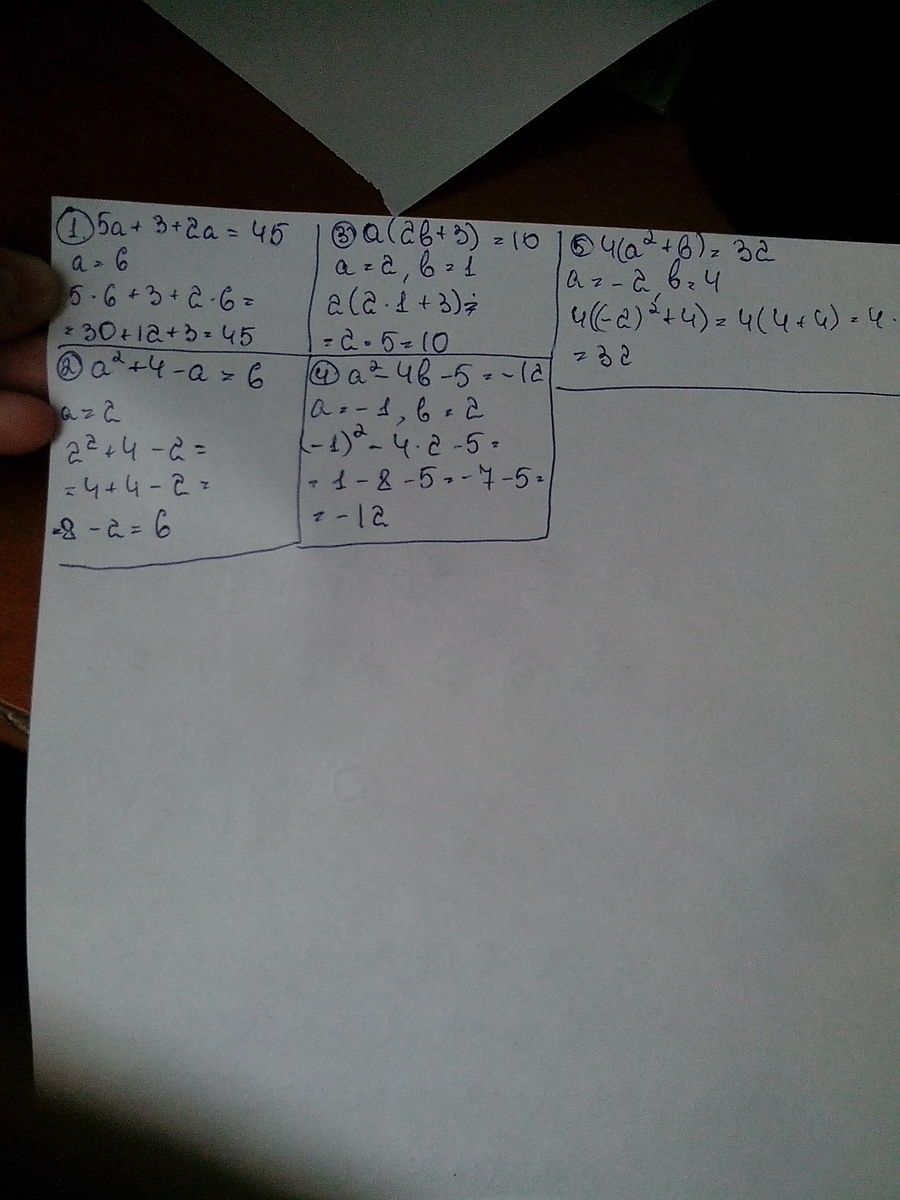 ① 5a + 3 + 2a = 45
a = 6
5 · 6 + 3 + 2 · 6 =
= 30 + 12 + 3 = 45
② a² + 4 - a = 6
a = 2
2² + 4 - 2 =
= 4 + 4 - 2 =
= 8 - 2 = 6
③ a(2в + 3) = 10
a = 2, в = 1
2(2 · 1 + 3) =
= 2 · 5 = 10
④ a² - 4в - 5 = -12
a = -1, в = 2
(-1)² - 4 · 2 - 5 =
= 1 - 8 - 5 = -7 - 5 =
= -12
⑤ 4(a² + в) = 32
a = -2 в = 4
4((-2)² + 4) = 4(4 + 4) = 4 ·
= 32